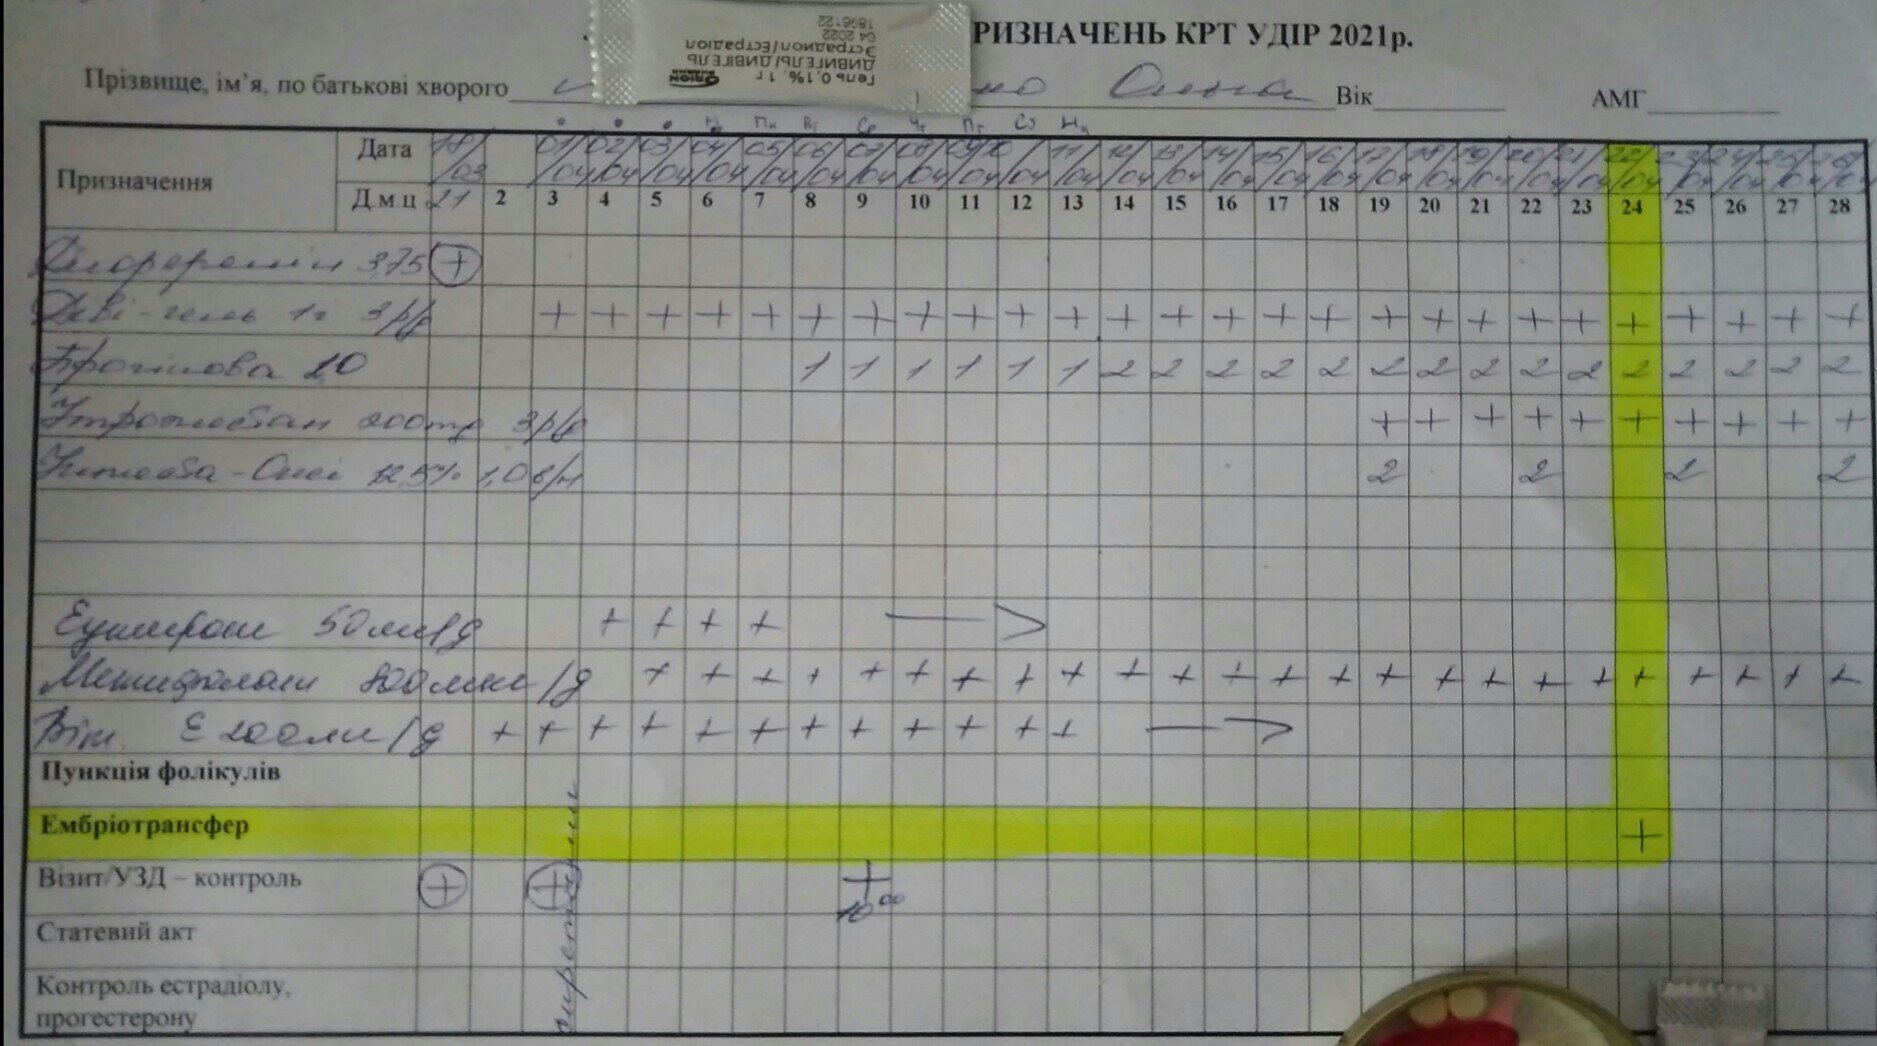 РИЗНАЧЕНЬ КРТ УДІР 2021р.
ORION
Гель 0,1%, 1 г
ДИВІГЕЛЬ/ДИВИГЕЛЬ
Эстрадиол/Естрадіол
04 2022
1896122
Прізвище, ім’я, по батькові хворого Вік АМГ
Пн Ср Чт Пт Нд
Призначення Дата 18/03 01/04 02/04 03/04 04/04 05/04 06/04 07/04 08/04 09/04 10/04 11/04 12/04 13/04 14/04 15/04 16/04 17/04 18/04 19/04 20/04 21/04 22/04 23/04 24/04 25/04 26/04
Д м ц 21 2 3 4 5 6 7 8 9 10 11 12 13 14 15 16 17 18 19 20 21 22 23 24 25 26 27 28
3,75 +
Деві-гель 1г 3р/д + + + + + + + + + + + + + + + + + + + + + + + + + +
Прогінова 1 1 1 1 1 1 2 2 2 2 2 2 2 2 2 2 2 2 2 2 2
Утрожестан 200мг 3р/д + + + + + + + + + +
12,5% 1,0 в/м 2 2 2 2
50 + + + +
800 мкг/д + + + + + + + + + + + + + + + + + + + + + + + +
Віт. Е 200мг/д + + + + + + + + + + + +
Пункція фолікулів
Ембріотрансфер +
Візит/УЗД – контроль + + +
10 00
Статевий акт
Контроль естрадіолу,
прогестерону